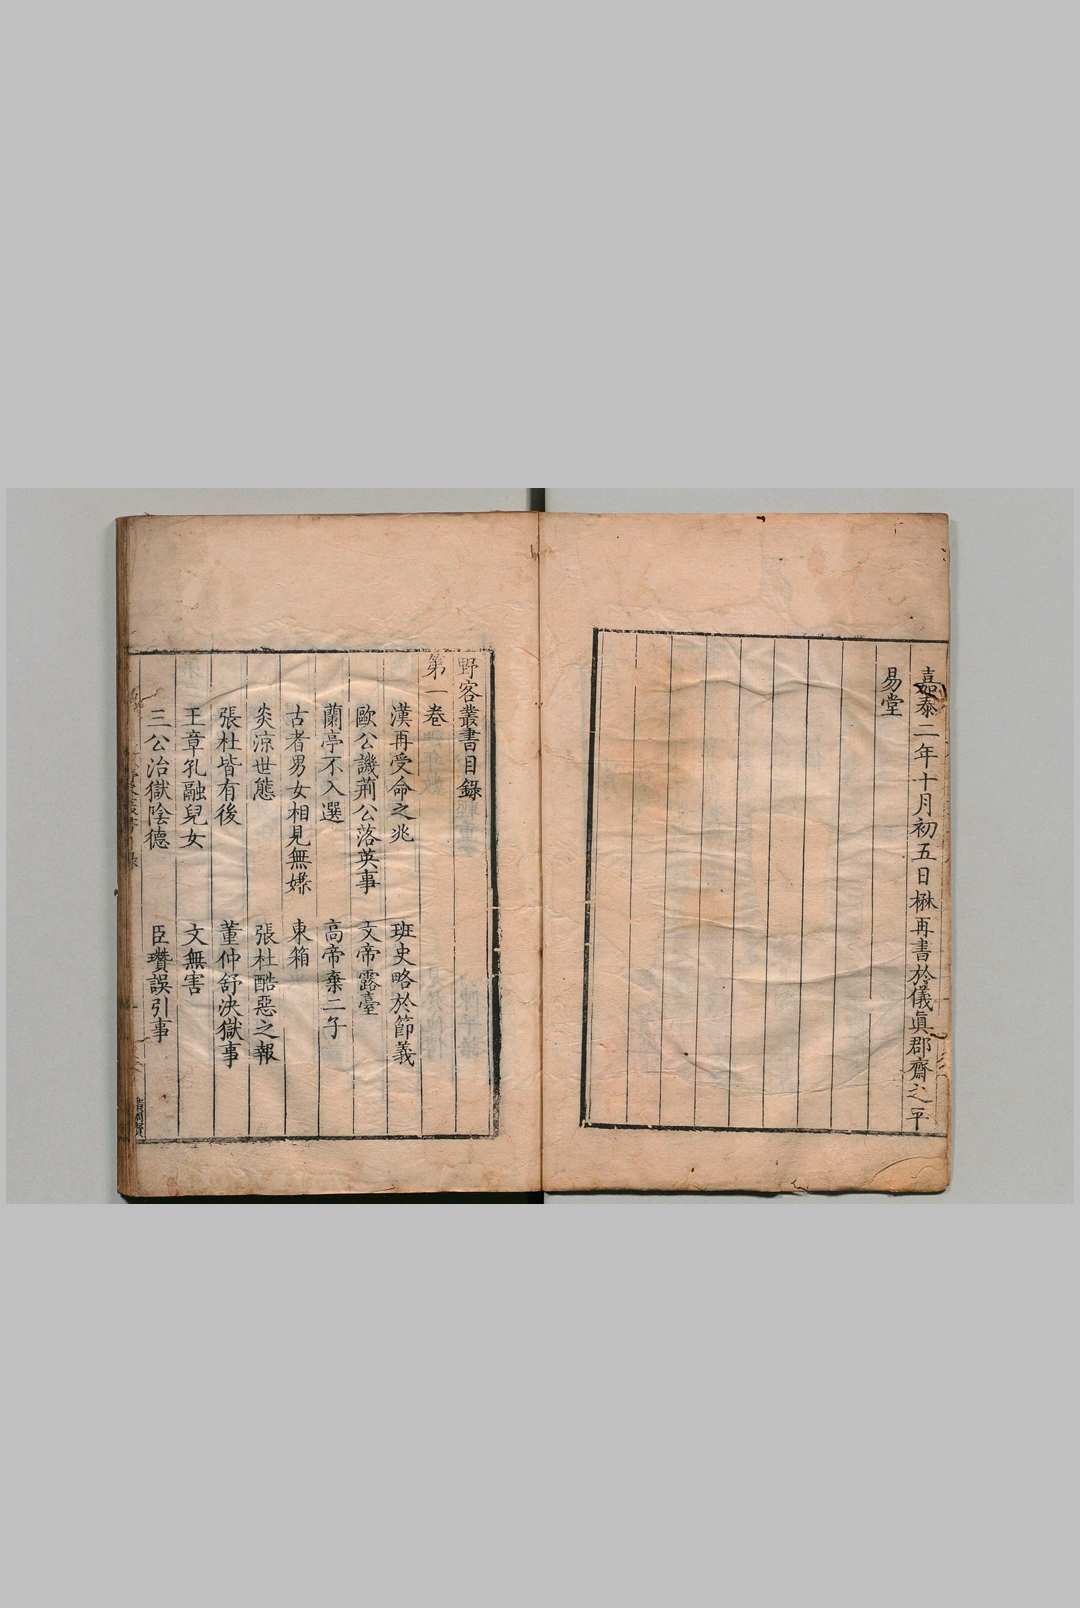 嘉泰二年十月初五日楙再書於儀眞郡齋之平
易堂
野客叢書目錄
第一卷
漢再受命之兆　班史略於節義
歐公譏荊公落英事　文帝露臺
蘭亭不入選　高帝棄二子
古者男女相見無嫌　東箱
炎涼世態　張杜酷惡之報
張杜皆有後　董仲舒決獄事
王章孔融兒女　文無害
三公治獄陰德　臣瓚誤引事